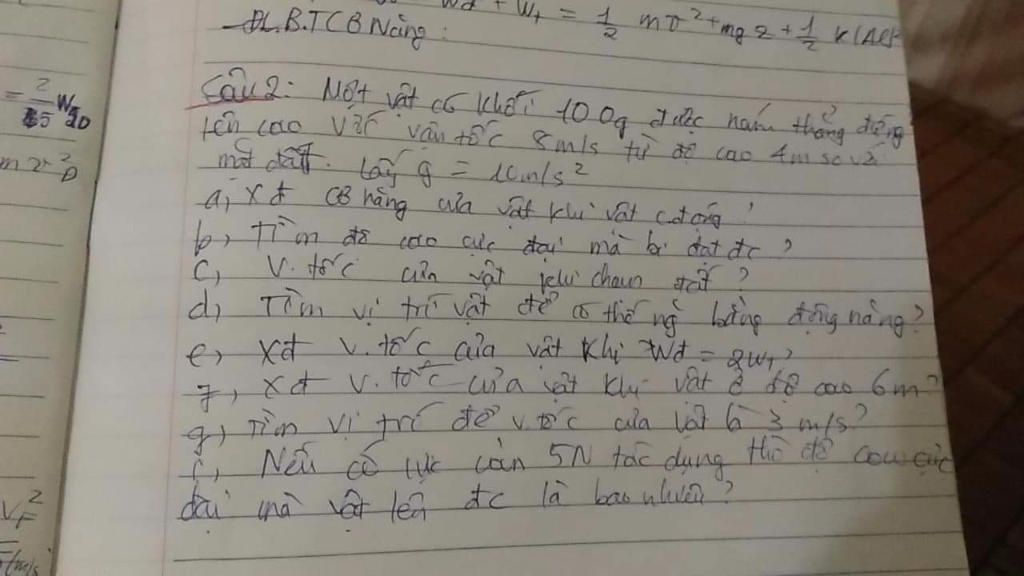 Wđ + Wt = 1/2 mv² + mgz + 1/2 k(Δl)²
ĐL.B.T CB Năng:
= 2/
W
m v²D
Câu 2: Một vật có khối 100g được ném thẳng đứng
lên cao với vận tốc 8m/s từ độ cao 4m so với
mặt đất. Lấy g = 10m/s²
a, xđ CB năng của vật khi vật c.động ?
b, Tìm độ cao cực đại mà bi đạt đc ?
c, V. tốc của vật khi chạm đất ?
d, Tìm vị trí vật để có thế ng bằng động năng ?
e, xđ v. tốc của vật khi Wđ = 2Wt ?
f, xđ v. tốc của vật khi vật ở độ cao 6m ?
g, Tìm vị trí để v tốc của vật là 3 m/s ?
Nếu có lực cản 5N tác dụng thì độ cao cực
đại mà vật lên đc là bao nhiêu ?
VF²
m/s